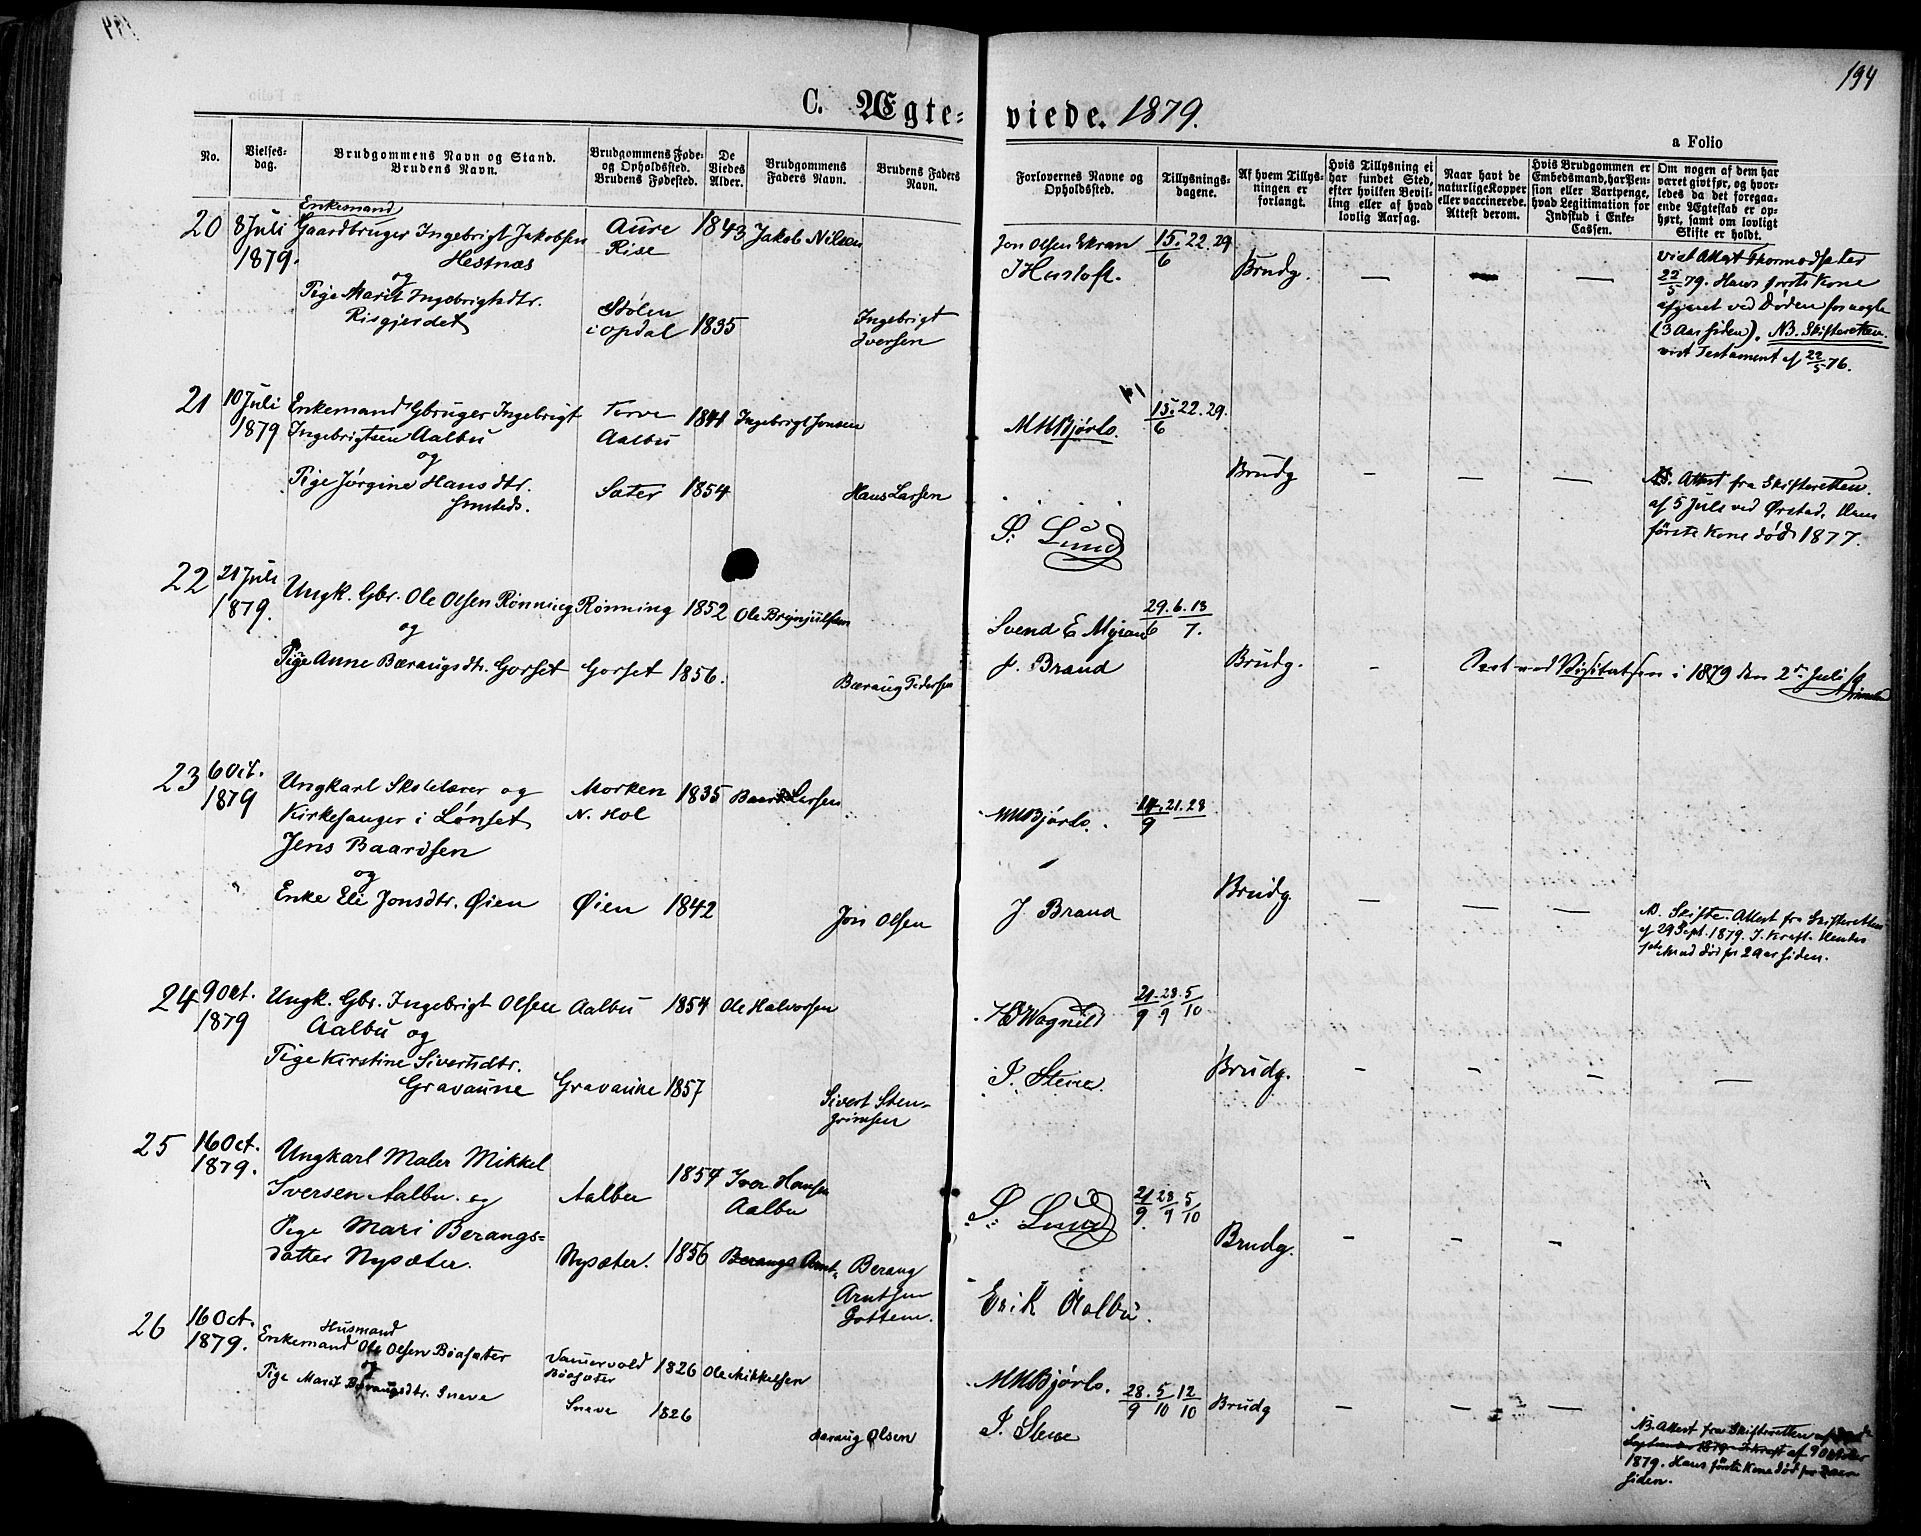 194
C. Ægte=viede. 1879.
a Folio
No.
Vielses-
dag.
Brudgommens Navn og Stand.
Brudens Navn.
Brudgommens Føde-
og Opholdssted.
Brudens Fødested.
De
Viedes
Alder.
Brudgommens
Faders Navn.
Brudens Faders
Navn.
Forlovernes Navne og
Opholdssted.
Tillysnings-
dagene.
Af hvem Tillys-
ningen er
forlangt.
Hvis Tillysning ei
har fundet Sted,
efter hvilken Bevil-
ling eller af hvad
lovlig Aarsag.
Naar havt de
naturlige Kopper
eller vaccinerede.
Attest derom.
Hvis Brudgommen er
Embedsmand, har Pen-
sion eller Vartpenge,
hvad Legitimation for
Indskud i Enke-
Cassen.
Om nogen af dem har
været gift før, og hvor-
ledes da det foregaa-
ende Ægteskab er op-
hørt, samt om lovligt
Skifte er holdt.
20
8 Juli
1879.
Enkemand
Gaardbruger Ingebrigt Jakobsen
Hestnæs
og
Pige Marit Ingebrigtsdtr.
Risgjerdet
Aure
Rise
Stølen
i Opdal
1843
1835
Jakob Nilsen
Ingebrigt
Iversen
Jon Olsen Ekran
15. 22. 29
6
Brudg.
— — —
vist Attest Thormodsæter
22/5 79. Hans første Kone
afgaaet ved Døden for nogle
(3 Aar siden). NB. Skifteretten
vist Testament af 22/5 76.
21
10 Juli
1879
Enkemand Gbruger Ingebrigt
Ingebrigtsen Aalbu
og
Pige Jørgine Hansdtr.
Aalbu
Sæter
1841
1854
Ingebrigt Jonsen
Hans Larsen
MHBjørlo.
S. Lund
15. 22. 29.
6
Brudg
— — —
NB. Attest fra Skifteretten
af 5 Juli ved Ørstad. Hans
første Kone død 1877.
22
21 Juli
1879.
Ungk. Gbr. Ole Olsen Rønning
og
Pige Anne Bæraugsdtr. Gorset
Rønning
Gorset
1852
1856.
Ole Brynjulfsen
Bæraug Pedersen
Svend E Myran
J. Brand
29. 6. 13
6 7.
Brudg.
—
ved Visitatsen i 1879 den 2den Juli
23
6 Oct.
1879
Ungkarl Skolelærer og
Kirkesanger i Lønset
Jens Baardsen
og
Enke Eli Jonsdtr. Øien
Morken
N. Hol
Øien
1835
1842
Baard Larsen
Jon Olsen
MHBjørlo.
J. Brand
14. 21. 28
9
Brudg.
— — —
NB. Skifte. Attest fra Skifteretten
af 29 Sept. 1879. J. Kraft. Hendes
1ste Mand død for 2 Aar siden.
24
9 Oct.
1879
Ungk. Gbr. Ingebrigt Olsen
Aalbu og
Pige Kirstine Sivertsdtr.
Gravaune
Aalbu
Gravaune
1854
1857
Ole Halvorsen
Sivert Sten-
grimsen
J. Stene.
21. 28. 5
9 9 10
Brudg.
— — — —
25
16 Oct.
1879.
Ungkarl Maler Mikkel
Iversen Aalbu. og
Pige Mari Berangs=
datter Nysæter.
Aalbu
Nysæter.
1854
1856
Iver Hansen
Aalbu
Beranga Arnt-
Berang
Arntsen
Gottem.
S. Lund
Erik Aalbu.
21 28 5
9. 9 10
Brudg.
— — —
26
16 Oct.
1879.
Husmand
Enkemand Ole Olsen Bøasæter
og
Pige Marit Bæraugsdtr. Sneve
Vammervold
Bøasæter
Sneve
1826
1826
Ole Mikkelsen
Bæraug Olsen
MHBjørlo.
J. Stene
28. 5 12
9 10 10
Brudg
— — —
NB. Attest fra Skifteretten
af 9 October
1879. Hans første Kone død for 2 Aar
siden.